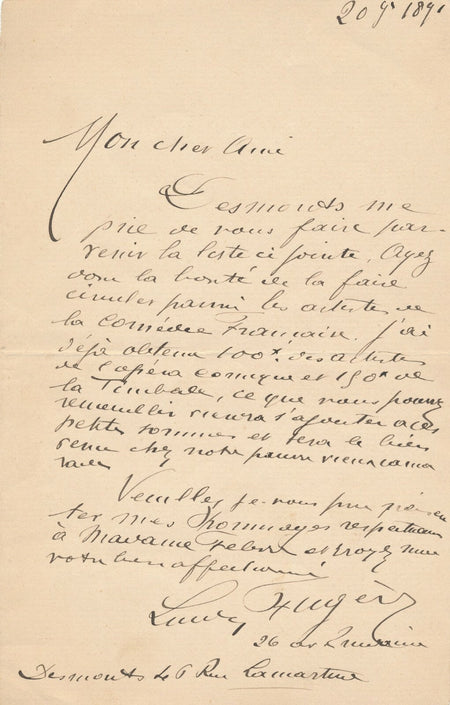 20 9r 1891
Mon cher Ami
Desmonts me
prie de vous faire par-
venir la liste ci jointe, Ayez
donc la bonté de la faire
circuler parmi les artistes de
la comédie Française. J'ai
déjà obtenu 100f des artistes
de l'opéra comique et 150f de
la Timbale, ce que vous pourrez
remeuiller viendra s'ajouter à ces
petites sommes et sera le bien
venu chez notre pauvre vieux cama
rade
Veuillez je vous prie présen
ter mes Hommages respectueux
à Madame Febvre et croyez moi
votre bien affectionné
Lucien Fugère
26 av Trudaine
Desmonts 46 Rue Lamartine